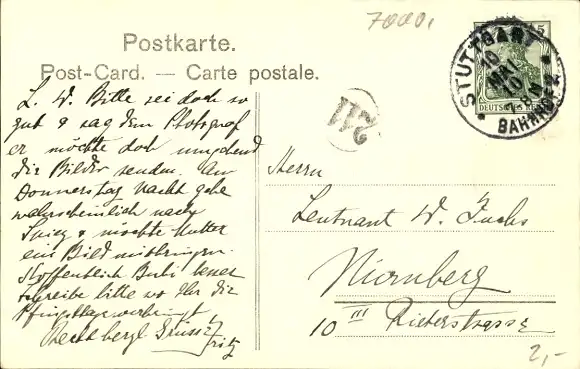 7000,
Postkarte.
Post-Card. — Carte postale.
STUTTGART
10
MAI
10
BAHNHOF 2
5
DEUTSCHES REICH
211
L. W. Bitte sei doch so
gut & sag dem Photograf
er möchte doch umgehend
die Bilder senden. Am
Donnerstag Nacht gehe
wahrscheinlich nach
& möchte Mutter
ein Bild mitbringen.
Hoffentlich Bubi besser
schreibe bitte wo Ihr die
Pfingsttage verbringt
Recht herzl. Grüsse
Fritz
Herrn
Leutnant W. Fuchs
Nürnberg
10 III Rieterstrasse
2,-